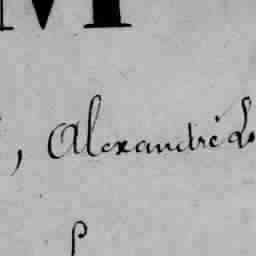 M
, Alexandre